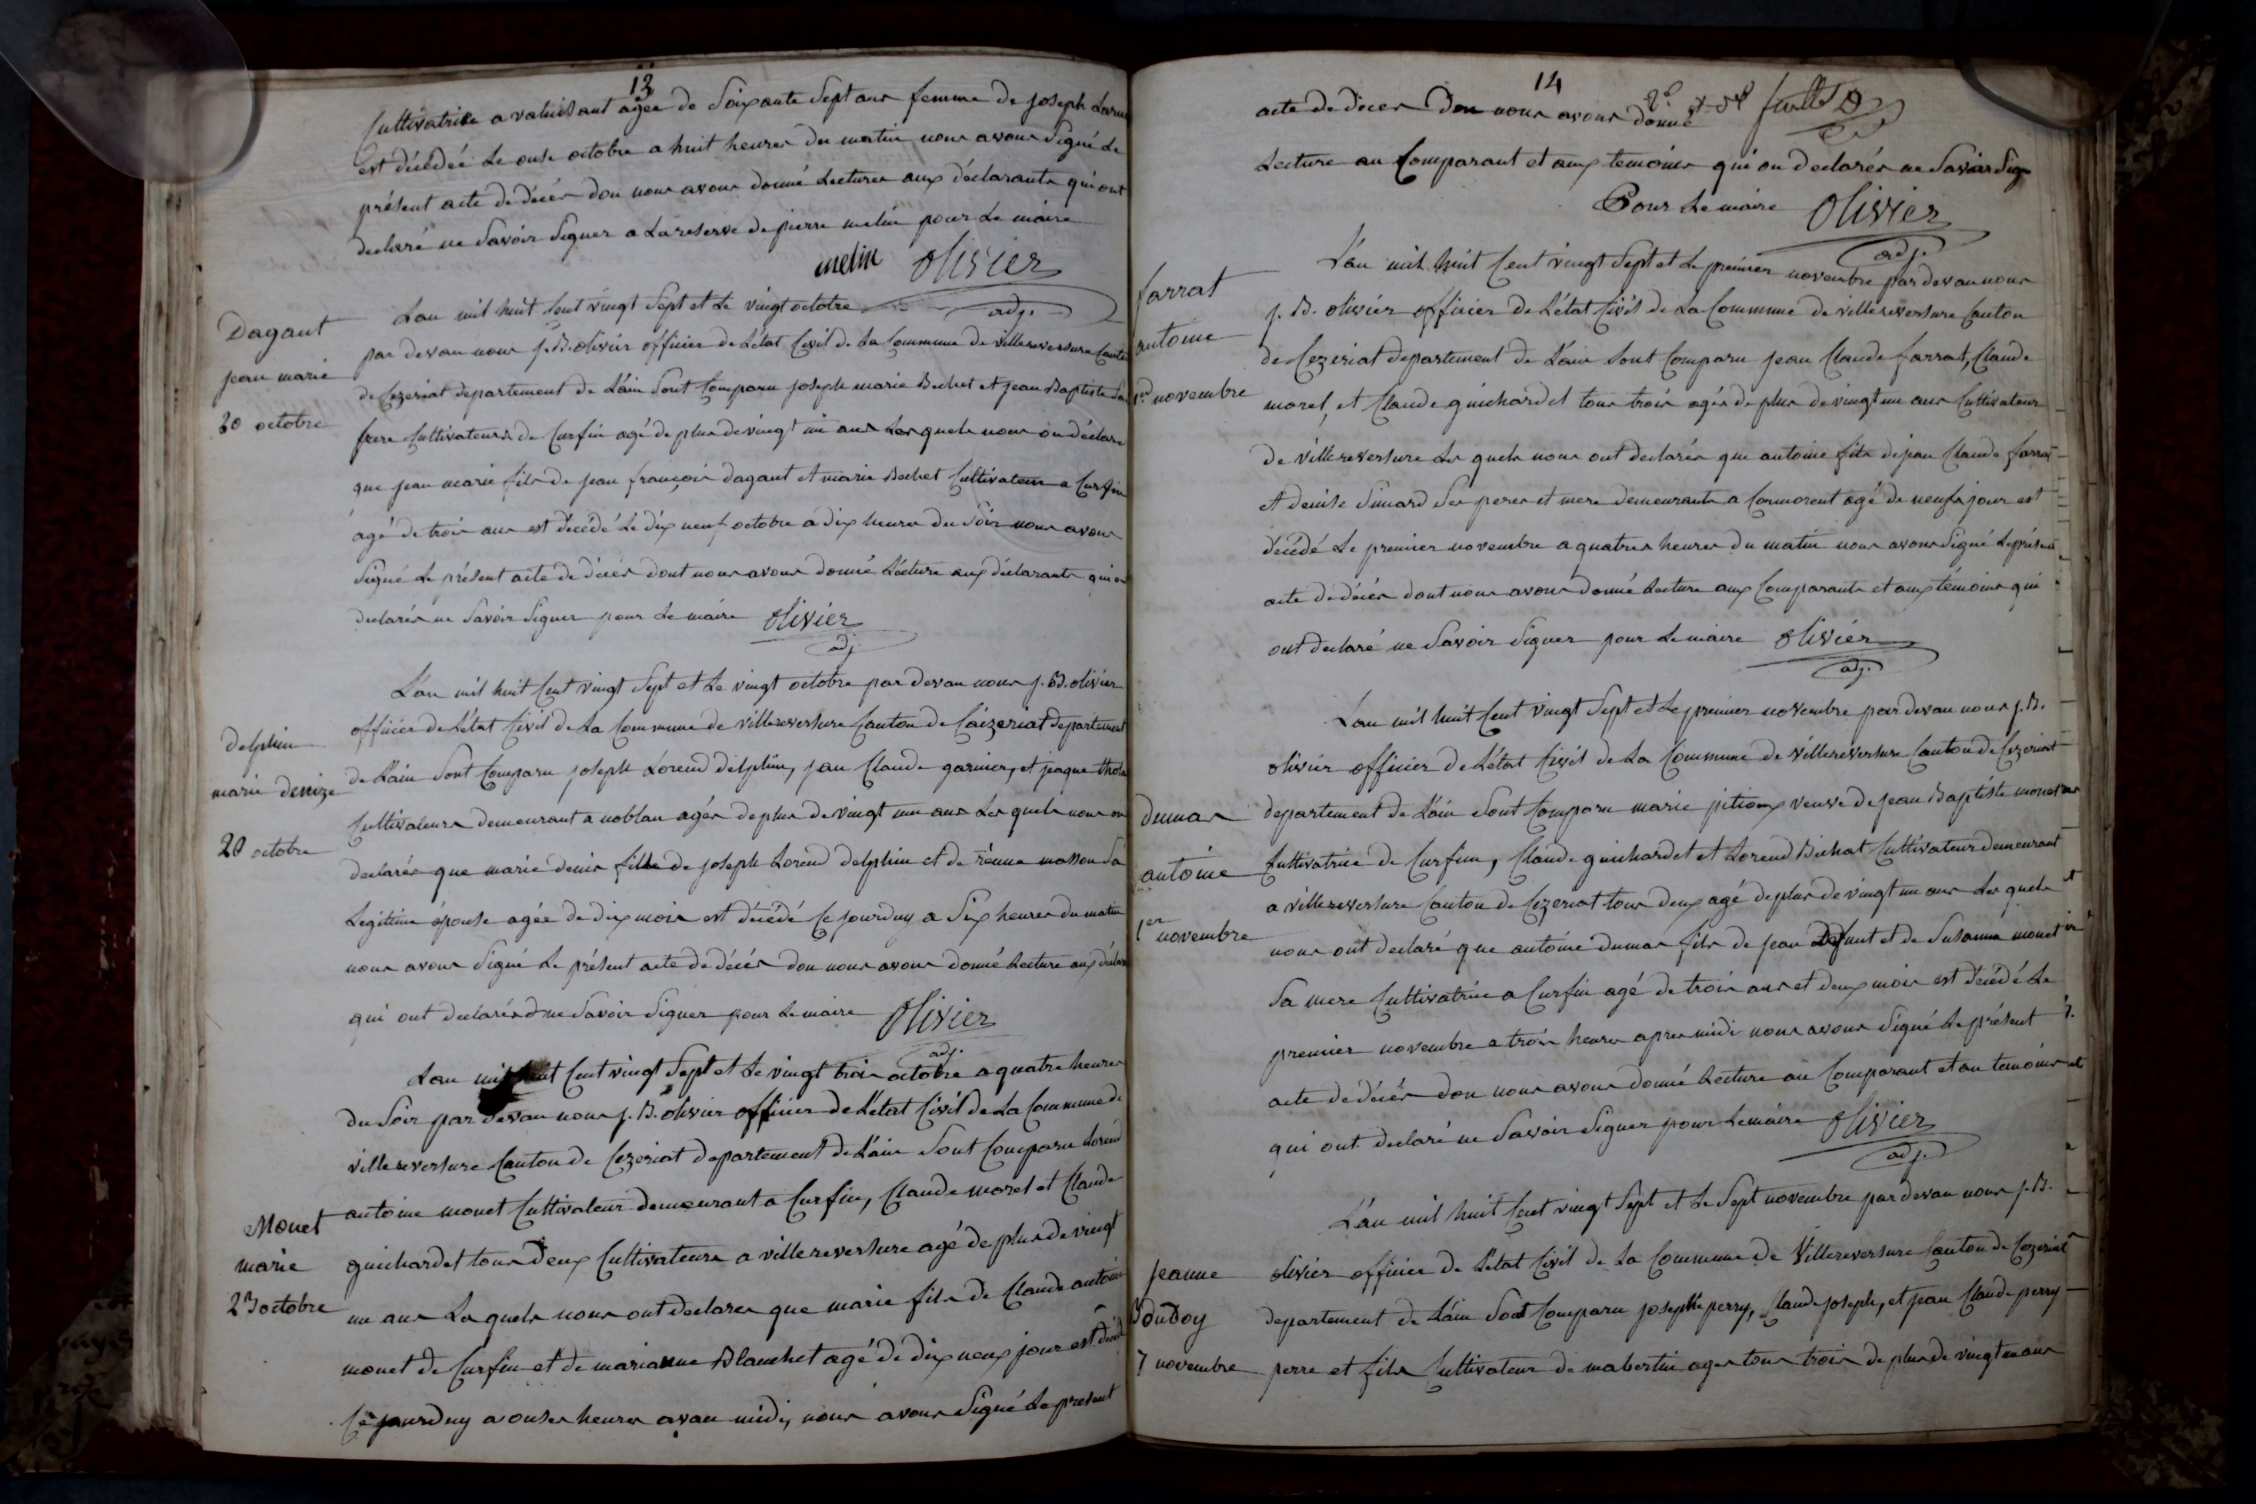 13
Cultivatrice a valuisant agée de Soixante Sept ans femme de joseph
est décédée Le onse octobre a huit heures du matin nous avons Signé Le
présent acte de décés don nous avons donné Lectures aux déclarants qui ont
declaré ne Savoir Signer a La reserve de pierre melin pour Le maire
melin olivier
adj.
Dagant
jean marie
20 octobre
L'an mil huit Cent vingt Sept et Le vingt octobre
par devan nous j. B. olivier officier de L'état Civil de La Commune de villereversure Canton
de Cezeriat departement de L'ain Sont Comparu joseph marie Bechet et jean Baptiste Son
frere Cultivateurs de Curfin agé de plus de vingt un ans Les quels nous on déclare
que jean marie fils de jean françois dagant et marie Bechet Cultivateur a Curfin
agé de trois ans est décédé Le dix neuf octobre a dix heures du Soir nous avons
Signé Le présent acte de décés dont nous avons donné Lecture aux déclarants qui on
declarés ne Savoir Signer pour Le maire olivier
adj.
delphin
marie denize
20 octobre
L'an mil huit Cent vingt Sept et Le vingt octobre par devan nous j. B. olivier
officier de L'état Civil de La Commune de villereversure Canton de Ceizeriat departement
de L'ain Sont Comparu joseph Lorend delphin, jean Claude garnier, et jaque
Cultivateurs demeurant a noblan agés de plus de vingt un ans Les quels nous on
declarés que marie denis fille de joseph Lorend delphin et de rénne masson Sa
Legitime épouse agée de dix mois est décédé Ce jourduy a Six heures du matin
nous avons Signé Le présent acte de décés don nous avons donné Lecture aux
qui ont declarés ne Savoir Signer pour Le maire olivier
adj.
Monet
marie
23 octobre
L'an mil huit Cent vingt Sept et Le vingt trois octobre a quatre heures
du Soir par devan nous j. B. olivier officier de L'état Civil de La Commune de
villereversure Canton de Cezeriat departement de L'ain Sont Comparu Lorend
antoine monet Cultivateur demeurant a Curfin, Claude morel et Claude
guichardet tous deux Cultivateurs a villereversure agé de plus de vingt
un ans Les quels nous ont declarés que marie fils de Claude antoine
monet de Curfin et de marianne Blanchet agé de dix neux jour est décédé
Ce jourduy a onses heures avan midi, nous avons Signé Le present
14
acte de décés don nous avons donné
Lecture au Comparant et aux temoins qui on declarés ne Savoir Sign
Pour Le maire olivier
adj.
farrat
antoine
1er novembre
L'an mil huit Cent vingt Sept et Le premier novembre par devan nous
j. B. olivier officier de L'état Civil de La Commune de villereversure Canton
de Cezeriat departement de L'ain Sont Comparu jean Claude farrat, Claude
morel, et Claude guichardet tous trois agés de plus de vingt un ans Cultivateur
de villereversure Les quels nous ont declarés que antoine fils de jean Claude farrat
et denise Simard Ses peres et mere demeurants a Cormorent agé de neufs jour est
décédé Le premier novembre a quatres heures du matin nous avons Signé Le présent
acte de décés dont nous avons donné Lecture aux Comparants et aux témoins qui
ont declaré ne Savoir Signer pour Le maire olivier
adj.
dumas
antoine
1er novembre
L'an mil huit Cent vingt Sept et Le premier novembre par devan nous j. B.
olivier officier de L'état Civil de La Commune de villereversure Canton de Cezeriat
departement de L'ain Sont Comparu marie pitioux veuve de jean Baptiste monet
Cultivatrice de Curfin, Claude guichardet et Lorend Bichat Cultivateur demeurant
a villereversure Canton de Cezeriat tous deux agé de plus de vingt un ans Les quels
nous ont declaré que antoine dumas fils de jean Defunt et de Susanne monet
Sa mere Cultivatrice a Curfin agé de trois ans et deux mois est décédé Le
premier novembre a trois heures apres midi nous avons Signé Le présent
acte de décés don nous avons donné Lecture au Comparant et au temoins
qui ont declaré ne Savoir Signer pour Le maire olivier
adj.
jeanne
Boudoy
7 novembre
L'an mil huit Cent vingt Sept et Le Sept novembre par devan nous j. B.
olivier officier de L'état Civil de La Commune de Villereversure Canton de Cezeriat
departement de L'ain Sont Comparu joseph perry, Claude joseph, et jean Claude perry
perre et fils Cultivateur de mabertin ages tous trois de plus de vingt un ans